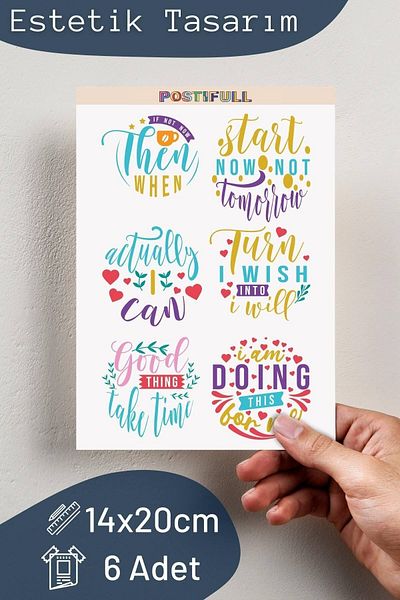 Estetik Tasarım
POSTİFULL
IF NOT NOW
Then
WHEN
start
NOW NOT
tomorrow
actually
I
can
Turn
I WISH
INTO
i will
Good
THING
take time
i am
DOING
THIS
for me
14x20cm
6 Adet